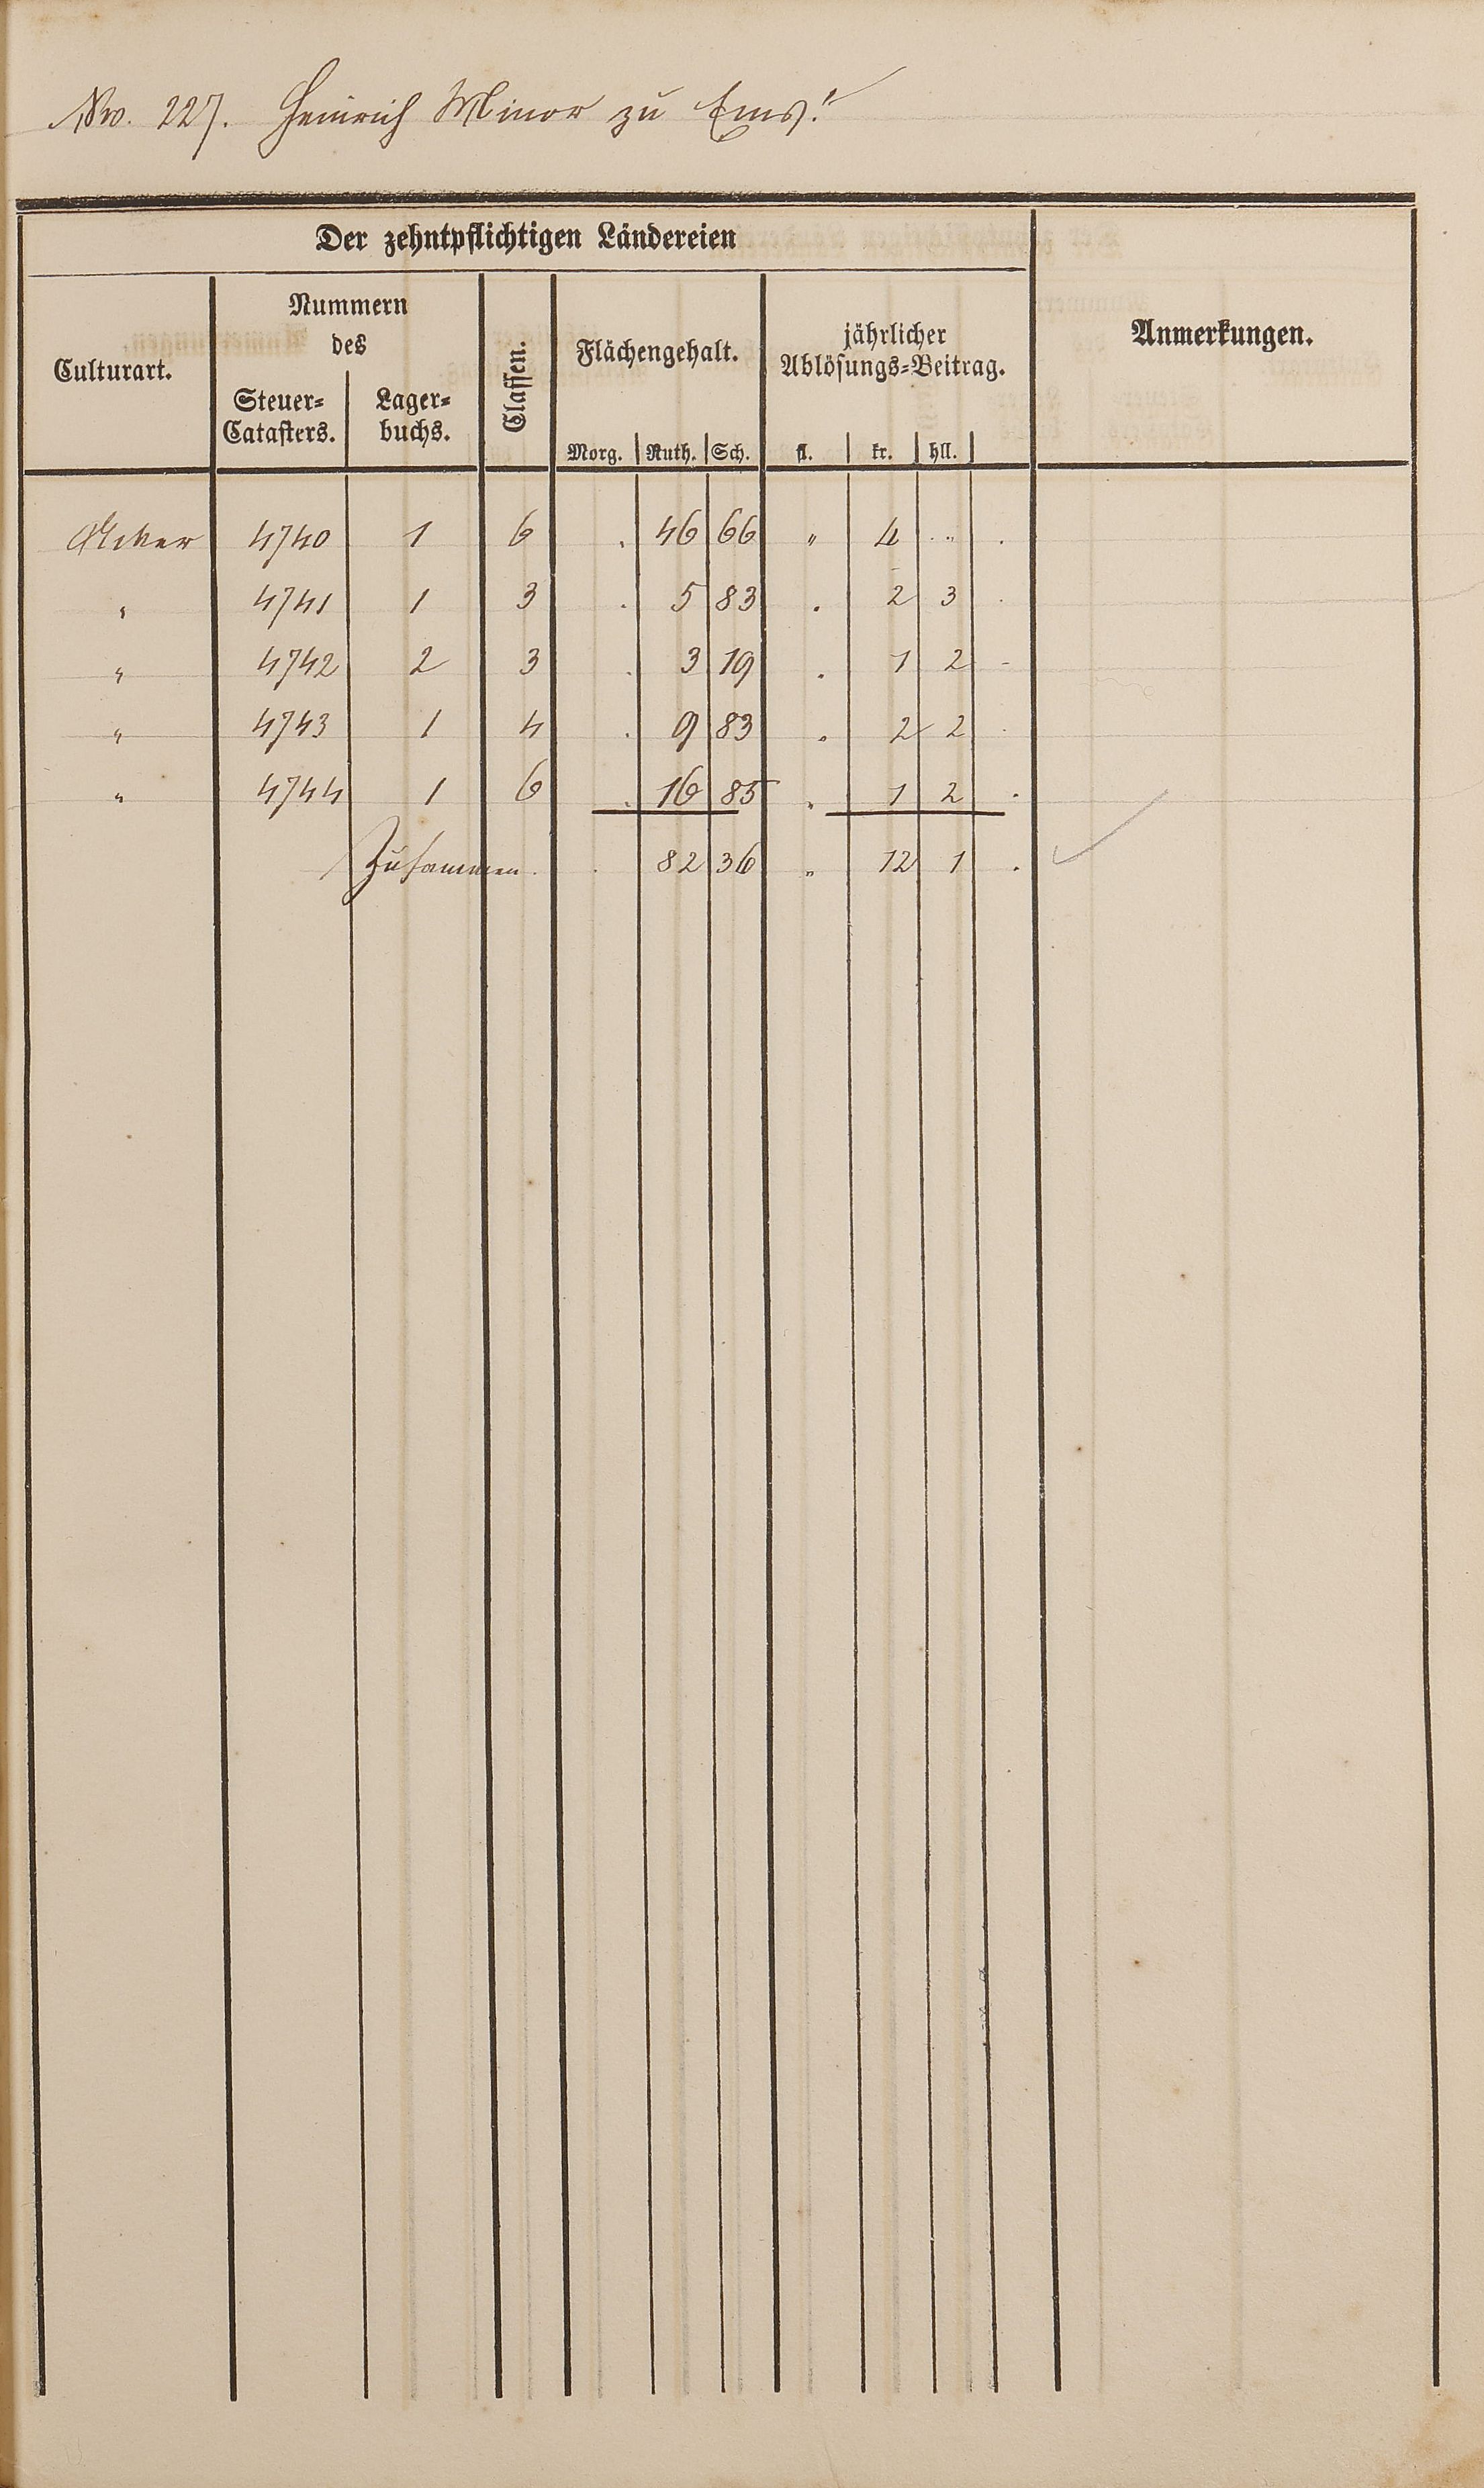 No. 227. Heinrich Minor zu Ems.
Der zehntpflichtigen Ländereien
Culturart.
Nummern
des
Steuer=
Catasters.
Lager=
buchs.
Classen.
Flächengehalt.
Morg. Ruth. Sch.
jährlicher
Ablösungs=Beitrag.
fl. kr. hll.
Anmerkungen.
Acker 4740 1 6 . 46 66 " 4 " .
" 4741 1 3 . 5 83 . 2 3 .
" 4742 2 3 . 3 19 . 1 2 -
" 4743 1 4 . 9 83 . 2 2 .
" 4744 1 6 . 16 85 " 1 2 .
Zusammen . 82 36 " 12 1 .